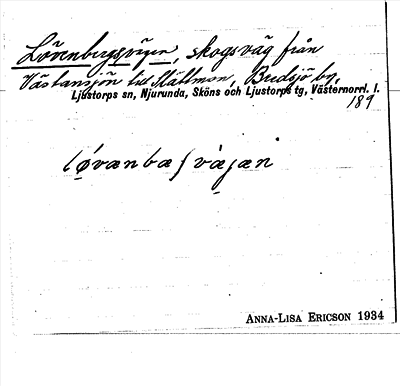 Lövenbergsvägen, skogsväg från
Västansjön till Slättmon, Bredsjö by,
Ljustorps sn, Njurunda, Sköns och Ljustorps tg, Västernorrl. l.
189
løvanbæʃvæjæn
ANNA-LISA ERICSON 1934